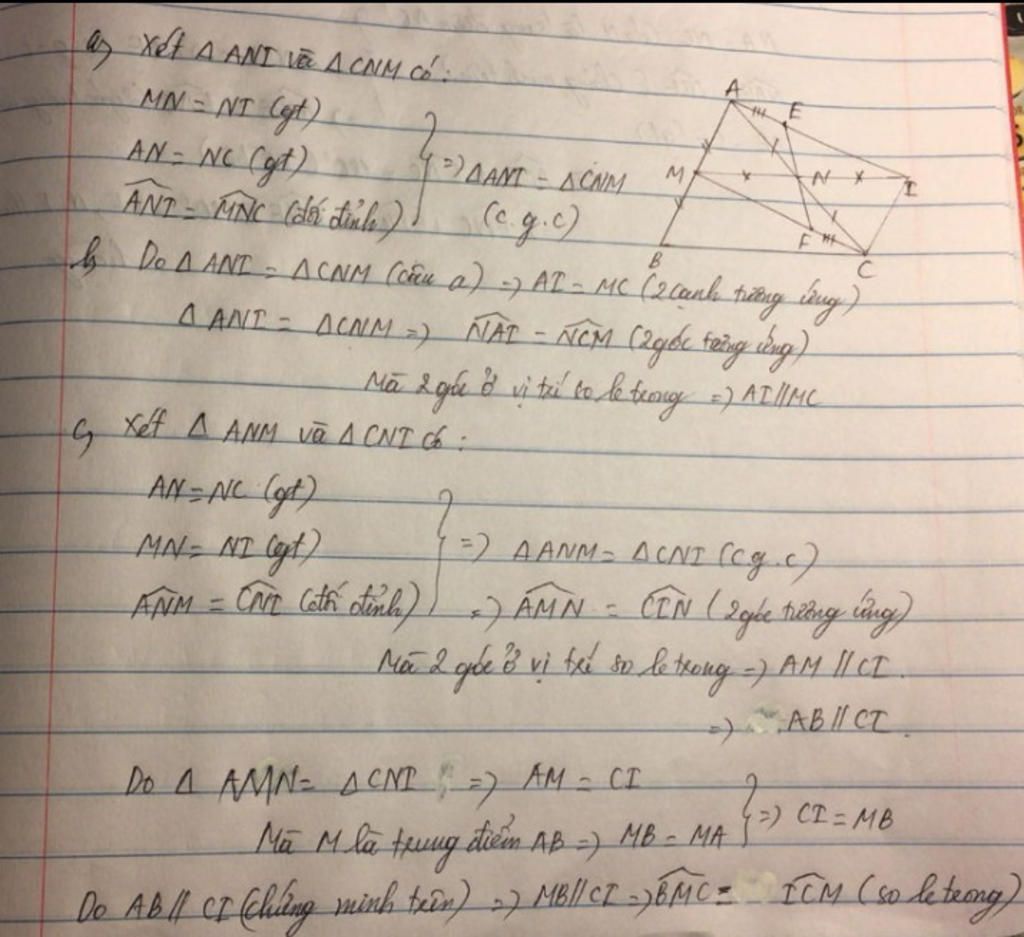 a) Xét Δ ANI và Δ CNM có:
MN = NI (gt)
AN = NC (gt)
ANI = MNC (đối đỉnh)
} => Δ ANI = Δ CNM
(c.g.c)
A
E
M
N
I
F
B
C
b) Do Δ ANI = Δ CNM (câu a) => AI = MC (2 cạnh tương ứng)
Δ ANI = Δ CNM => NAI = NCM (2 góc tương ứng)
Mà 2 góc ở vị trí so le trong => AI // MC
c) Xét Δ ANM và Δ CNI có:
AN = NC (gt)
MN = NI (gt)
ANM = CNI (đối đỉnh)
} => Δ ANM = Δ CNI (c.g.c)
=> AMN = CIN (2 góc tương ứng)
Mà 2 góc ở vị trí so le trong => AM // CI.
=> AB // CI.
Do Δ AMN = Δ CNI => AM = CI
Mà M là trung điểm AB => MB = MA } => CI = MB
Do AB // CI (chứng minh trên) => MB // CI => BMC = ICM (so le trong)